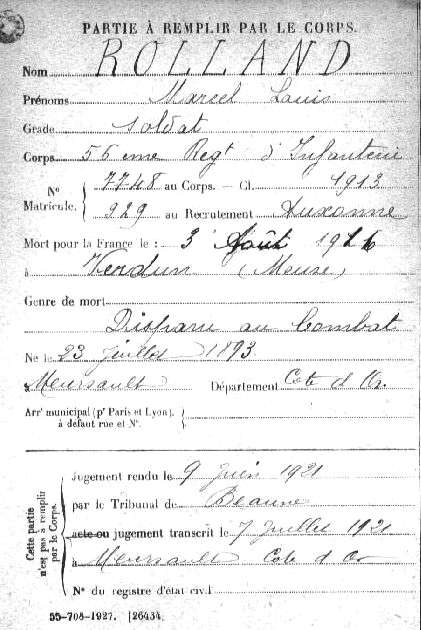 PARTIE À REMPLIR PAR LE CORPS.
Nom ROLLAND
Prénoms Marcel Louis
Grade soldat
Corps 56 eme Regt d'Infanterie
N° Matricule. { 7748 au Corps. — Cl. 1913
929 au Recrutement Auxonne
Mort pour la France le : 3 Août 1916
à Verdun (Meuse)
Genre de mort
Disparu au Combat
Né le 23 Juillet 1893
à Meursault Département Cote d'Or
Arrt municipal (pr Paris et Lyon), à défaut rue et N°. {
Cette partie n'est pas à remplir par le Corps. {
Jugement rendu le 9 Juin 1921
par le Tribunal de Beaune
acte ou jugement transcrit le 7 Juillet 1921
à Meursault Cote d'Or
N° du registre d'état civil
55-708-1927. [26434.